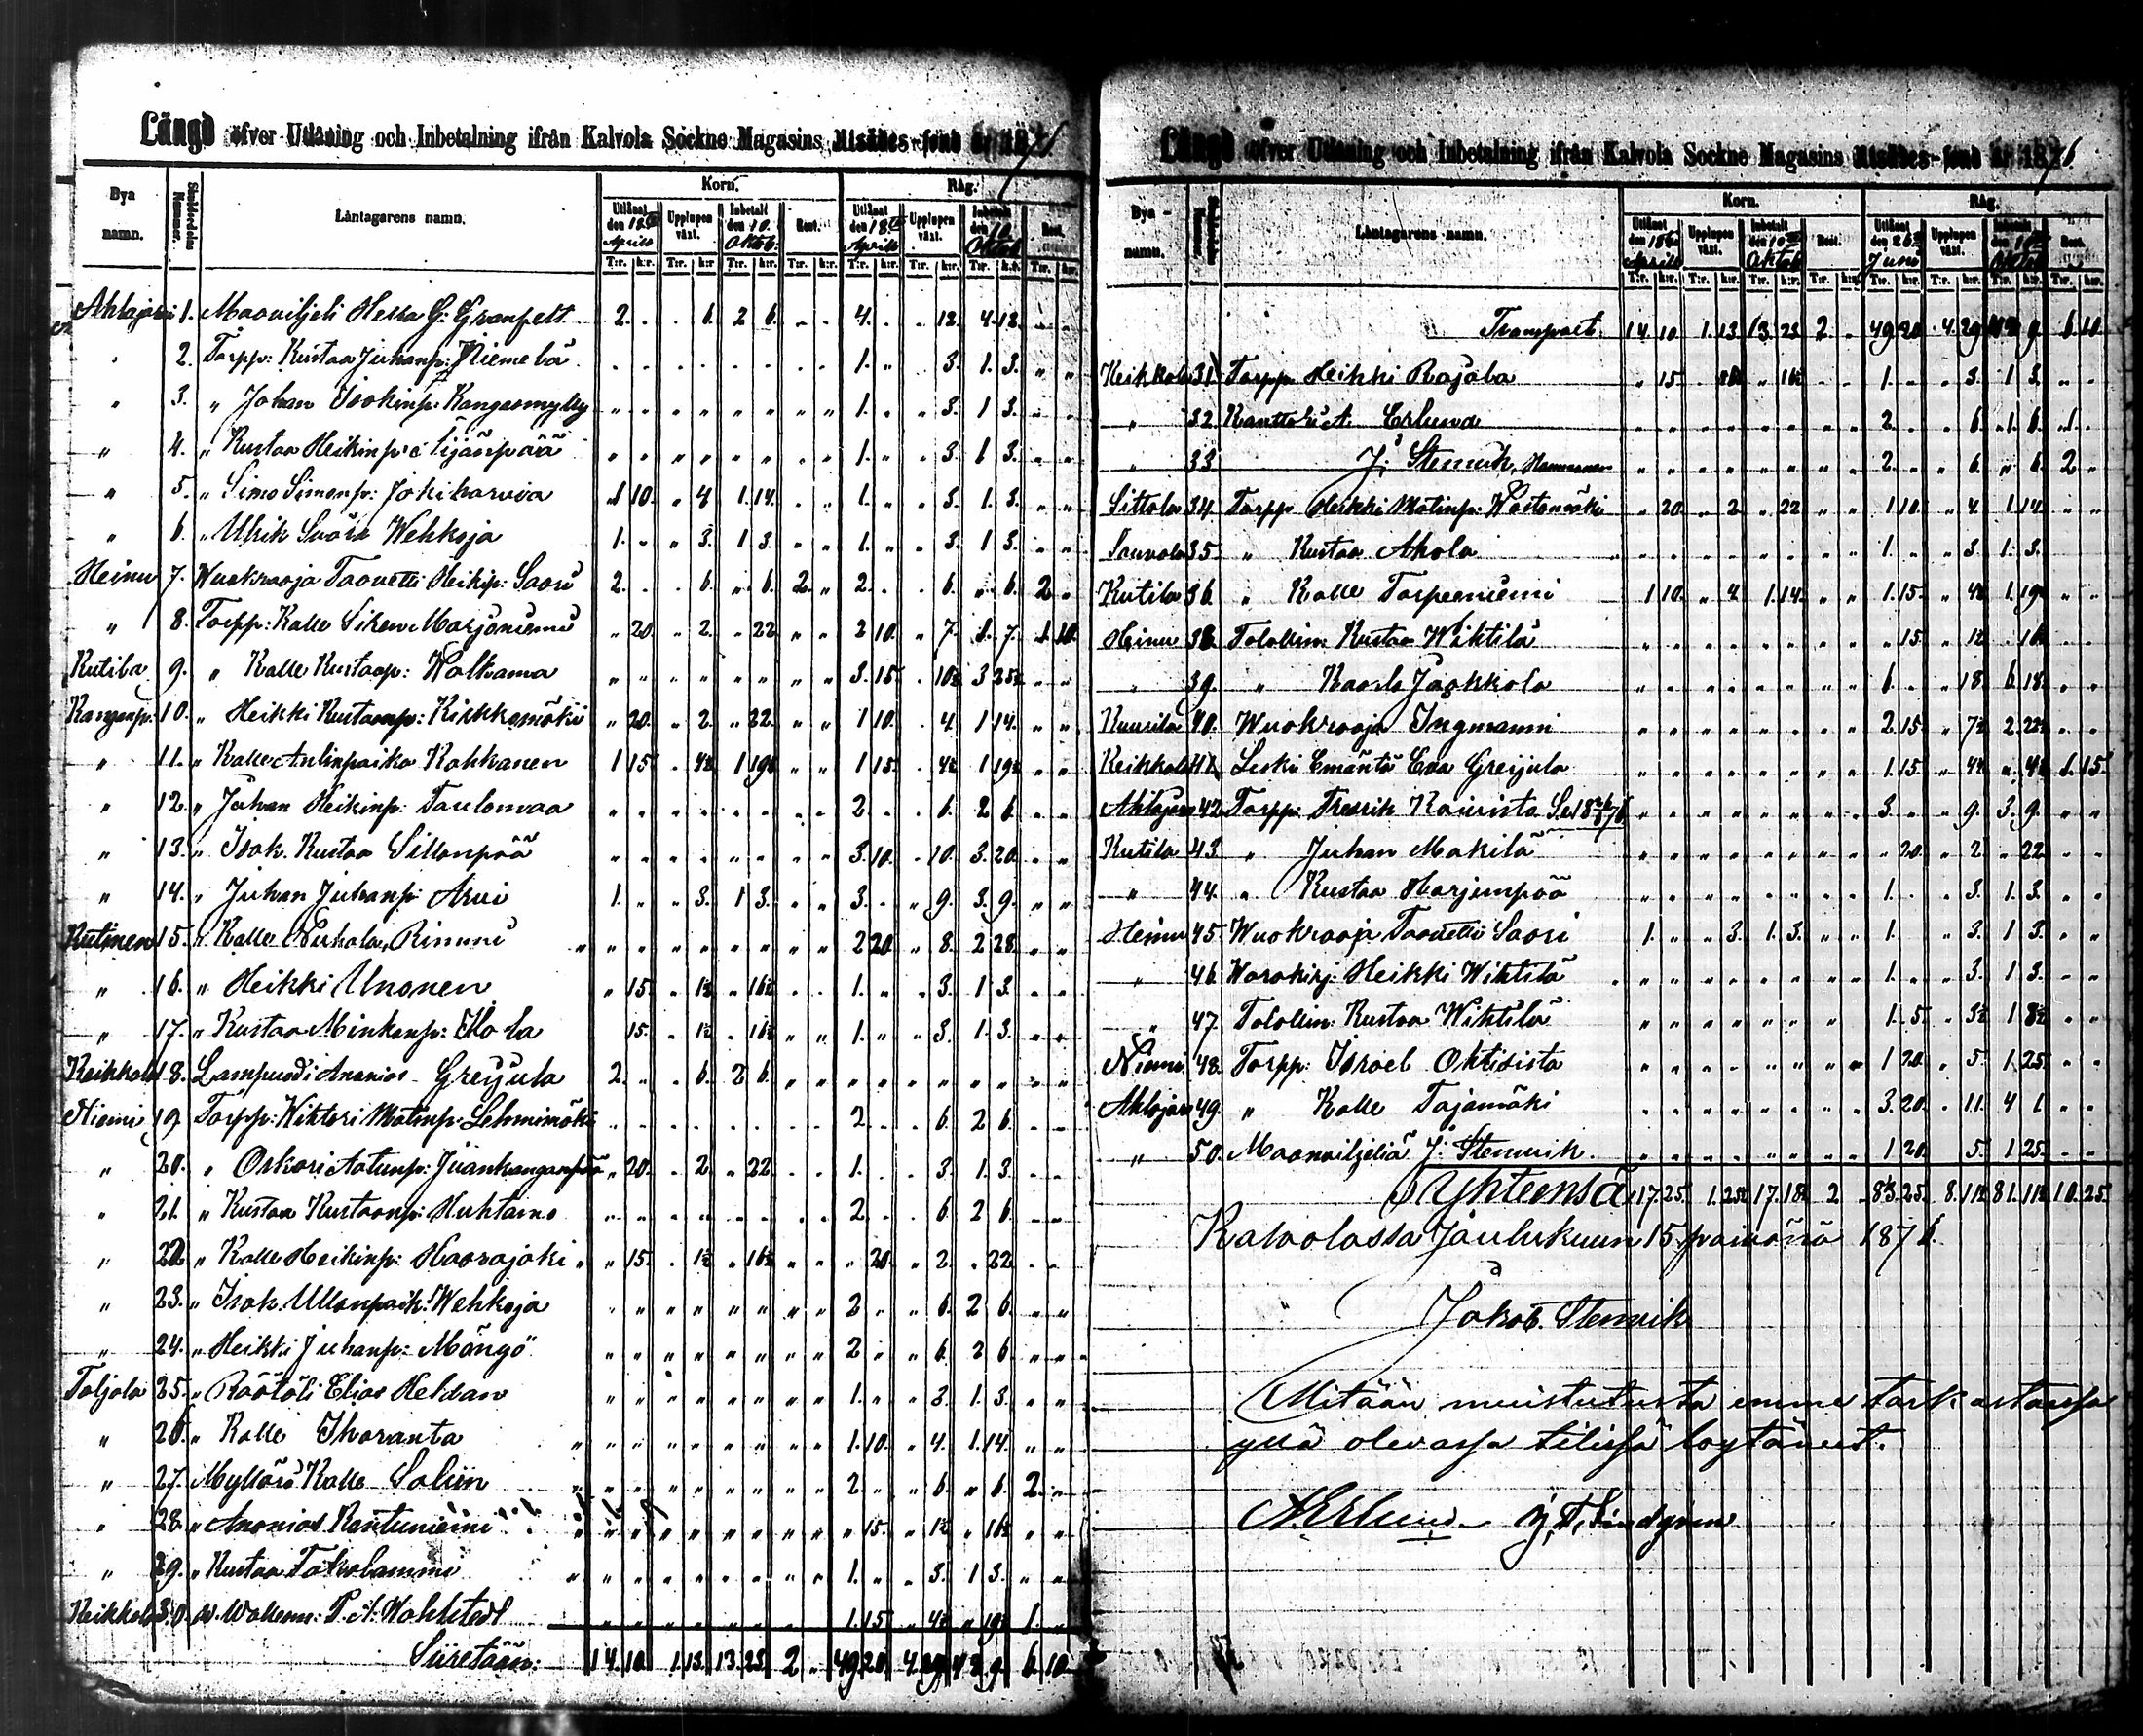 Längd öfver Utlåning och Inbetalning ifrån Kalvola Sockne Magasins Utsädes-fond år 1876
Bya namn. Skuldsedelns Nummer. Låntagarens namn. Korn. Råg.
Utlånt den 18de Aprill Upplupen växt. Inbetalt den 10. Oktob. Rest. Utlånt den 18de Aprill Upplupen växt. Inbetalt den 10 Oktob Rest.
T:r. k:r. T:r. k:r. T:r. k:r. T:r. k:r. T:r. k:r. T:r. k:r. T:r. k:r. T:r. k:r.
1. Maaviljeli Hessa G: Granfelt 2. 6. 2 6. 4. 12. 4.12.
2. Torpp: Kustaa Juhanp: Niemelä 1. 3. 1.3.
3. " Johan Isokinp: Kangasmylly 1. 3. 1 3.
4. " Kustaa Heikinp: Äijänpää 1. 3. 1 3.
5. " Simo Simonp: Jokiharvia 1 10. 4 1.14. 1. 3. 1.3.
6. " Ulrik Wehkoja 1. 3. 1 3. 1. 3. 1 3.
Heinu 7. Wuokraaja Taavetti Heikip: Saari 2. 6. 6. 2. 2. 6. 6. 2
8. Torpp: Kalle Marjoniemi 20. 2. 22 2 10. 7. 1. 7. 1.10.
Kutila 9. " Kalle Kustaap: Walkama 3.15. 10½ 3 25½
Kanganp. 10. " Heikki Kustaanp: Kirkkomäki 20. 2. 22. 1 10. 4 1 14.
11. " Kalle Antinpoika Kohkanen 1 15. 4½ 1 19½ 1 15. 4½ 1 19½
12. " Juhan Heikinp: Taulomaa 2. 6. 2 6.
13. " Isak. Kustaa Sillanpää 3.10. 10. 3.20.
14. " Juhan Juhanp: Arvi 1. 3. 1 3. 3. 9. 3.9.
15. " Kalle Rimmi 2 20 8. 2 28.
16. " Heikki Unonen 15. 1½ 16½ 1. 3. 1 3.
17. " Kustaa 15. 1½ 16½ 1. 3. 1.3.
Keikkala 18. Lampuodi Ananias Greijula 2. 6. 2 6.
Niemi 19. Torpp: Wiktori Matinp: Lehmimäki 2. 6. 2 6.
20. " Oskari Juankanganpää 20. 2. 22. 1. 3. 1.3.
21. " Kustaa Kustaanp: Huhtamo 2. 6 2 6.
22. " Kalle Heikinp: Haarajoki 15. 1½ 16½ 20. 2. 22.
23. " Isak Ullanpoik: Wehkoja 2. 6. 2 6.
24. " Heikki Juhanp: Mängö 2 6. 2 6
Taljala 25. " Räätäli Elias Heldan 1. 3. 1.3.
26. " Kalle Ihoranta 1.10. 4. 1.14.
27. Mylläri Kalle Salin 2. 6. 6. 2.
28. " Ananias Rantuniemi 15. 1½ 16½
29. " Kustaa 1. 3. 1 3.
Keikkala 30. Wahlstedt 1.15. 4½ 19½ 1.
Siiretään: 14.10. 1.13. 13.23. 2 49.20. 4.29. 43 9. 6 10
Längd öfver Utlåning och Inbetalning ifrån Kalvola Sockne Magasins Utsädes-fond år 1876.
Bya namn. Låntagarens namn. Korn. Råg.
Utlånt den 18de Aprill Upplupen växt. Inbetalt den 10de Oktob Rest. Utlånt den 26te Juni Upplupen växt. Inbetalt den 10de Oktob Rest.
T:r. k:r. T:r. k:r. T:r. k:r. T:r. k:r. T:r. k:r. T:r. k:r. T:r. k:r. T:r. k:r.
Transport. 14 10 1.13. 13.23 2 49 20. 4.29 43 9. 6 10
Keikkala 31. Torpp. Heikki Rajala 15. 16½ 1. 3. 1 3.
32 Kanttori A. Erlund 2. 6. 1. 6. 1.
33 J: Stenvik, 2. 6. 6. 2
Sittala 34. Torpp Heikki Matinp: 20. 2 22 1 10. 4. 1.14.
Sauvala 35. " Kustaa Ahola 1. 3. 1.3.
Kutila 36. " Kalle Torpeeniemi 1.10. 4. 1.14. 1.15. 4½ 1.19½
Heinu 38. Talollin: Kustaa Wihtilä 15. 1½ 16½
39. " Kaarlo Jaakkola 6. 18 6.18.
Kuurila 40. Wuokraaja Ingmanni 2.15. 7½ 2.22½
Keikkala 41. Leski Emäntä Eva Greijula 1.15. 4½ 4½ 1.15.
42. Torpp: Fredrik Kaivisto 3. 9. 3.9.
Kutila 43. " Juhan Mäkilä 20. 2. 22
44. " Kustaa Harjunpää 1. 3. 1.3.
Heinu 45. Wuokraaja Taavetti Saari 1. 3. 1.3. 1. 3. 1 3.
46. Heikki Wihtilä 1. 3. 1 3.
47. Talollin: Kustaa Wihtilä 1.5. 3½ 1 8½
Niemi 48. Torpp: Israel Ohtisista 1 20. 5. 1.25.
49. " Kalle Tajamäki 3.20. 11. 4 1.
50. Maanviljeliä J: Stenvik. 1 20. 5. 1 25.
Yhteensä 17.25. 1.25½ 17.18½ 2 83.25. 8.11½ 81.11½ 10.25.
Kalvolassa Joulukuun 15 päivänä 1876.
Jakob. Stenvik
Mitään muistutusta emme tarkastaissa
yllä olevassa tilissä löytäneet.
A. Erlund. J, F, Lindgren